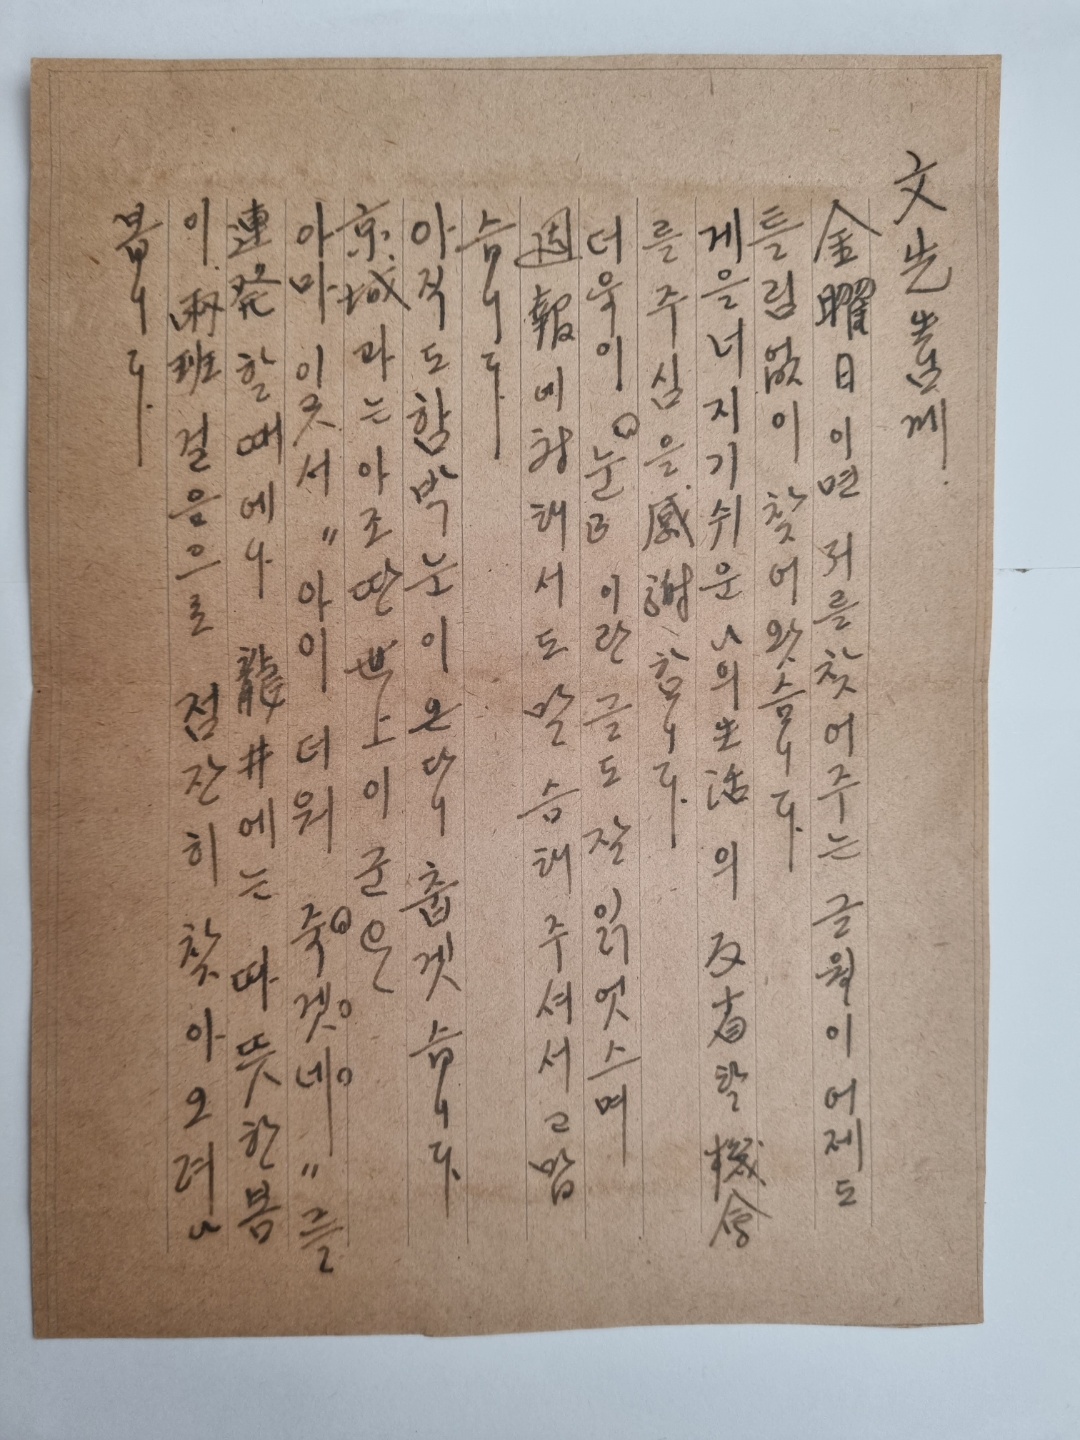 文 先生 께.
金曜日이면 저를 찾어주는 글월이 어제도
틀림없이 찾어 왓슴니다.
게을너지기쉬운 ㅅ의 生活의 反省할 機會
를 주심을 感謝 합니다.
더욱이 눈 이란글도 잘 읽엇스며
週報에 해서도 말슴해 주셔서 고맙
슴니다.
아직도 함박눈이 온다니 춥겟슴니다.
京城과는 아조 딴 世上이군요
아마 이곳서 "아이 더워 죽겟네"를
連発할때에나 龍井에는 따뜻한 봄
이 兩班 걸음으로 점잔히 찾아 오려나
봄니다.